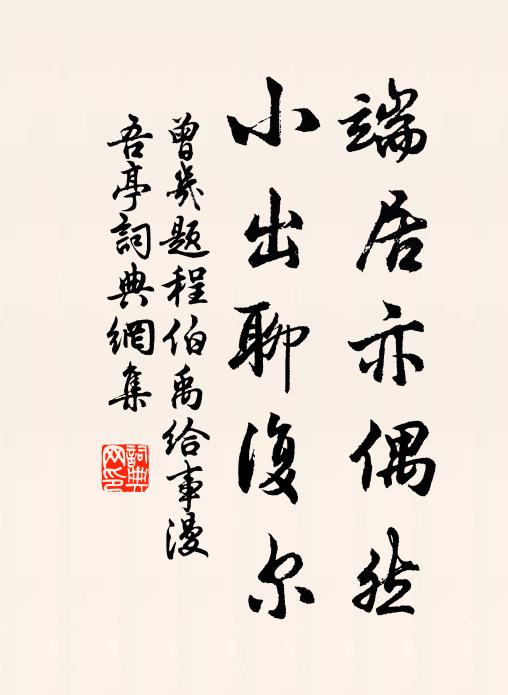 端居亦偶然
小出聊復尔
曾幾題程伯禹給事漫
吾亭詞典網集
詞典网印